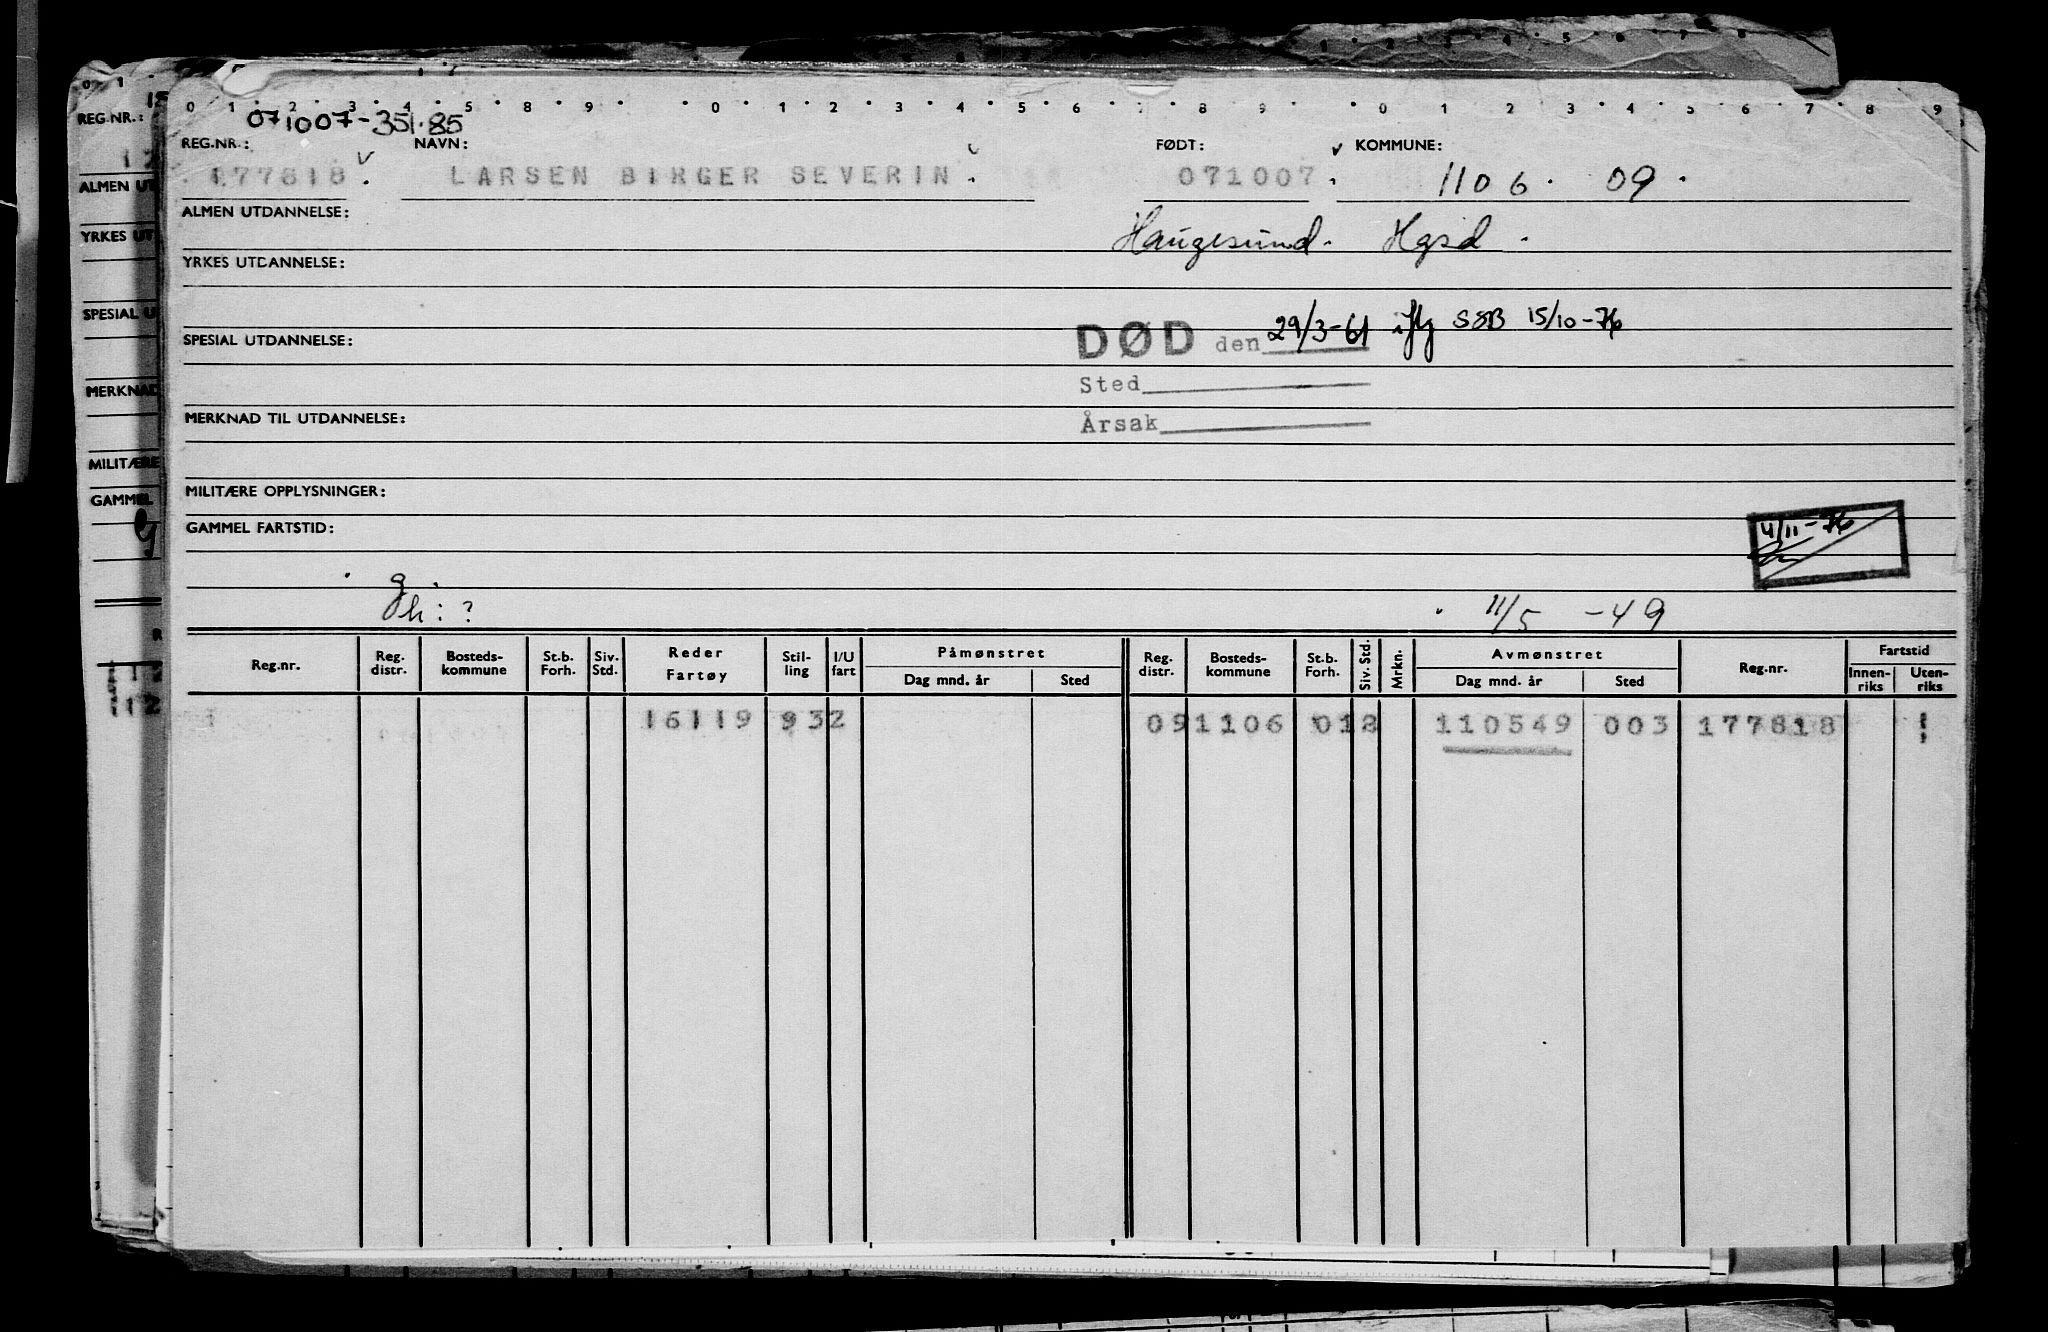 071007-351.85
REG.NR.: NAVN: FØDT: KOMMUNE:
177818. LARSEN BIRGER SEVERIN. 071007. 1106. 09.
ALMEN UTDANNELSE: Haugesund. Hgsd.
YRKES UTDANNELSE:
DØD den 29/3-61 iflg SSB 15/10-76
SPESIAL UTDANNELSE:
Sted
MERKNAD TIL UTDANNELSE: Årsak
MILITÆRE OPPLYSNINGER:
GAMMEL FARTSTID:
4/11-76
g.
h: ? 11/5 -49
Reg.nr. Reg. distr. Bosteds-kommune St.b. Forh. Siv. Std. Reder Fartøy Stil-ling I/U fart Påmønstret Dag mnd. år Sted Reg. distr. Bosteds-kommune St.b. Forh. Siv. Std. Mrkn. Avmønstret Dag mnd. år Sted Reg.nr. Fartstid Innen-riks Uten-riks
16119 932 091106 012 110549 003 177818